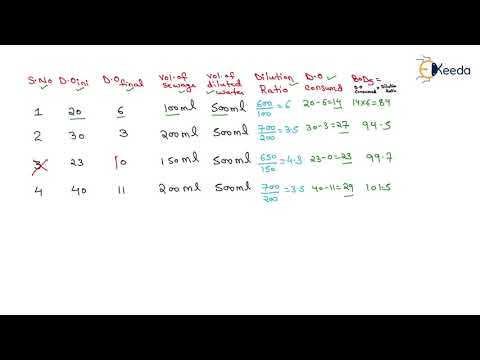 Ekeeda
S.No D.Oini D.Ofinal Vol. of sewage Vol. of diluted water Dilution Ratio D.O Consumed BOD5 = D.O Consumed × Dilution Ratio
1 20 6 100ml 500ml 600/100 = 6 20-6=14 14x6=84
2 30 3 200ml 500ml 700/200 = 3.5 30-3=27 94.5
3 23 0 150ml 500ml 650/150 = 4.3 23-0=23 99.7
4 40 11 200ml 500ml 700/200 = 3.5 40-11=29 101.5